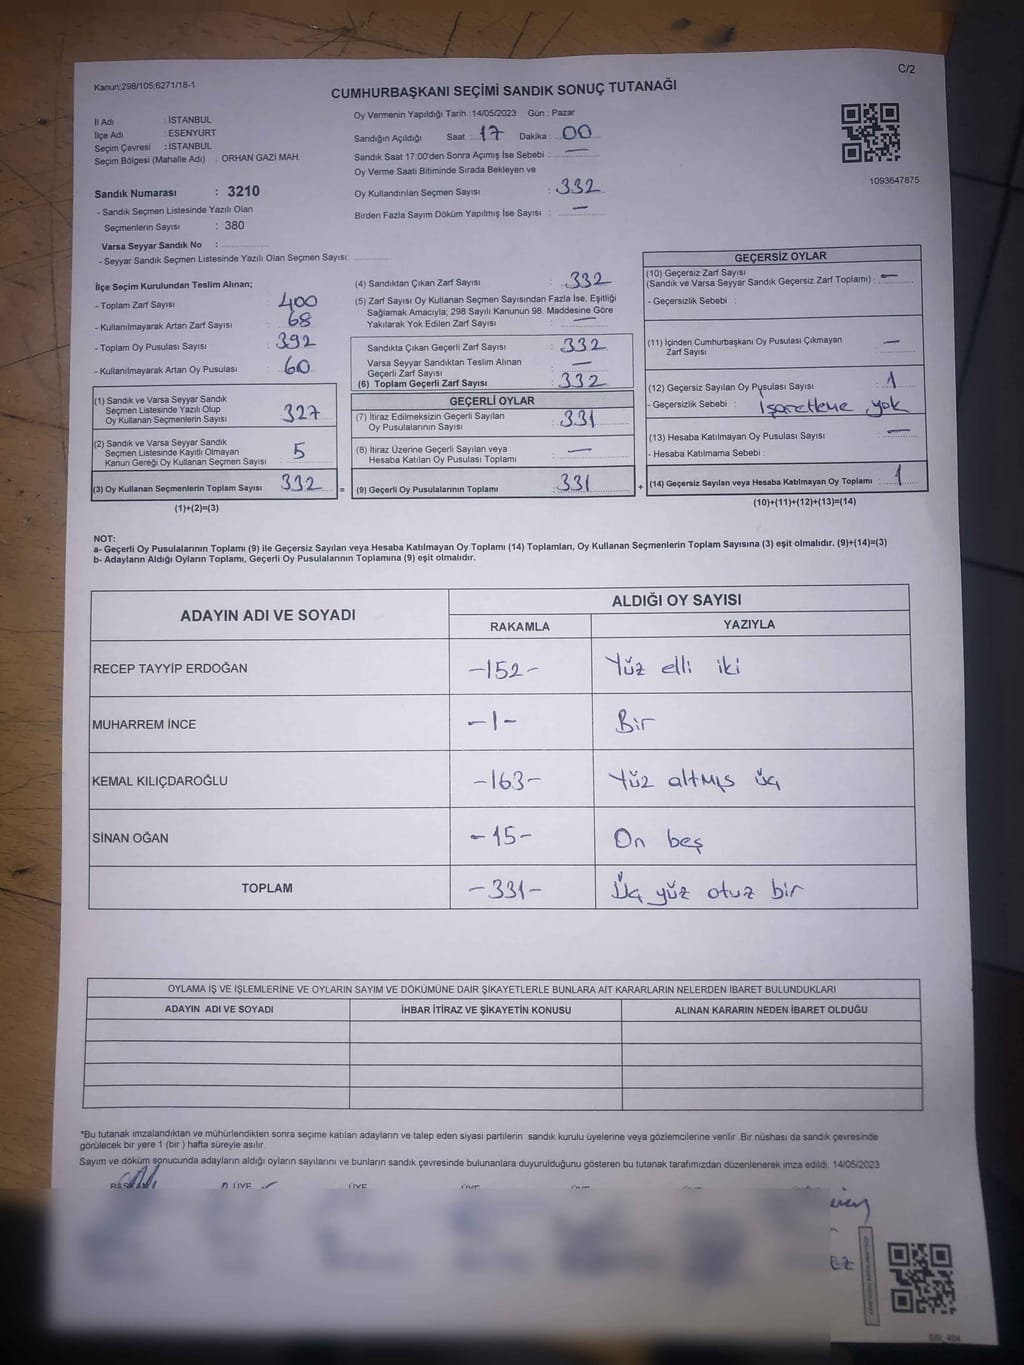 Kanun;298/105;6271/18-1
C/2
CUMHURBAŞKANI SEÇİMİ SANDIK SONUÇ TUTANAĞI
İl Adı : İSTANBUL
İlçe Adı : ESENYURT
Seçim Çevresi : İSTANBUL
Seçim Bölgesi (Mahalle Adı) : ORHAN GAZİ MAH.
Sandık Numarası : 3210
- Sandık Seçmen Listesinde Yazılı Olan
Seçmenlerin Sayısı : 380
Varsa Seyyar Sandık No :
- Seyyar Sandık Seçmen Listesinde Yazılı Olan Seçmen Sayısı:
Oy Vermenin Yapıldığı Tarih : 14/05/2023 Gün : Pazar
Sandığın Açıldığı Saat : 17 Dakika : 00
Sandık Saat 17:00'den Sonra Açımış İse Sebebi : —
Oy Verme Saati Bitiminde Sırada Bekleyen ve
Oy Kullandırılan Seçmen Sayısı : 332
Birden Fazla Sayım Döküm Yapılmış İse Sayısı : —
1093647875
İlçe Seçim Kurulundan Teslim Alınan;
- Toplam Zarf Sayısı : 400
- Kullanılmayarak Artan Zarf Sayısı : 68
- Toplam Oy Pusulası Sayısı : 392
- Kullanılmayarak Artan Oy Pusulası : 60
(1) Sandık ve Varsa Seyyar Sandık
Seçmen Listesinde Yazılı Olup
Oy Kullanan Seçmenlerin Sayısı : 327
(2) Sandık ve Varsa Seyyar Sandık
Seçmen Listesinde Kayıtlı Olmayan
Kanun Gereği Oy Kullanan Seçmen Sayısı : 5
(3) Oy Kullanan Seçmenlerin Toplam Sayısı : 332
(1)+(2)=(3)
(4) Sandıktan Çıkan Zarf Sayısı : 332
(5) Zarf Sayısı Oy Kullanan Seçmen Sayısından Fazla İse, Eşitliği
Sağlamak Amacıyla, 298 Sayılı Kanunun 98. Maddesine Göre
Yakılarak Yok Edilen Zarf Sayısı : —
Sandıkta Çıkan Geçerli Zarf Sayısı : 332
Varsa Seyyar Sandıktan Teslim Alınan
Geçerli Zarf Sayısı : —
(6) Toplam Geçerli Zarf Sayısı : 332
GEÇERLİ OYLAR
(7) İtiraz Edilmeksizin Geçerli Sayılan
Oy Pusulalarının Sayısı : 331
(8) İtiraz Üzerine Geçerli Sayılan veya
Hesaba Katılan Oy Pusulası Toplamı : —
= (9) Geçerli Oy Pusulalarının Toplamı : 331 +
GEÇERSİZ OYLAR
(10) Geçersiz Zarf Sayısı
(Sandık ve Varsa Seyyar Sandık Geçersiz Zarf Toplamı) : —
- Geçersizlik Sebebi :
(11) İçinden Cumhurbaşkanı Oy Pusulası Çıkmayan
Zarf Sayısı : —
(12) Geçersiz Sayılan Oy Pusulası Sayısı : 1
- Geçersizlik Sebebi : İşaretleme yok
(13) Hesaba Katılmayan Oy Pusulası Sayısı : —
- Hesaba Katılmama Sebebi :
(14) Geçersiz Sayılan veya Hesaba Katılmayan Oy Toplamı : 1
(10)+(11)+(12)+(13)=(14)
NOT:
a- Geçerli Oy Pusulalarının Toplamı (9) ile Geçersiz Sayılan veya Hesaba Katılmayan Oy Toplamı (14) Toplamları, Oy Kullanan Seçmenlerin Toplam Sayısına (3) eşit olmalıdır. (9)+(14)=(3)
b- Adayların Aldığı Oyların Toplamı, Geçerli Oy Pusulalarının Toplamına (9) eşit olmalıdır.
ADAYIN ADI VE SOYADI
ALDIĞI OY SAYISI
RAKAMLA YAZIYLA
RECEP TAYYİP ERDOĞAN -152- Yüz elli iki
MUHARREM İNCE -1- Bir
KEMAL KILIÇDAROĞLU -163- Yüz altmış üç
SİNAN OĞAN -15- On beş
TOPLAM -331- Üç yüz otuz bir
OYLAMA İŞ VE İŞLEMLERİNE VE OYLARIN SAYIM VE DÖKÜMÜNE DAİR ŞİKAYETLERLE BUNLARA AİT KARARLARIN NELERDEN İBARET BULUNDUKLARI
ADAYIN ADI VE SOYADI İHBAR İTİRAZ VE ŞİKAYETİN KONUSU ALINAN KARARIN NEDEN İBARET OLDUĞU
*Bu tutanak imzalandıktan ve mühürlendikten sonra seçime katılan adayların ve talep eden siyasi partilerin sandık kurulu üyelerine veya gözlemcilerine verilir .Bir nüshası da sandık çevresinde
görülecek bir yere 1 (bir ) hafta süreyle asılır
Sayım ve döküm sonucunda adayların aldığı oyların sayılarını ve bunların sandık çevresinde bulunanlara duyurulduğunu gösteren bu tutanak tarafımızdan düzenlenerek imza edildi. 14/05/2023
BAŞKAN ÜYE ÜYE